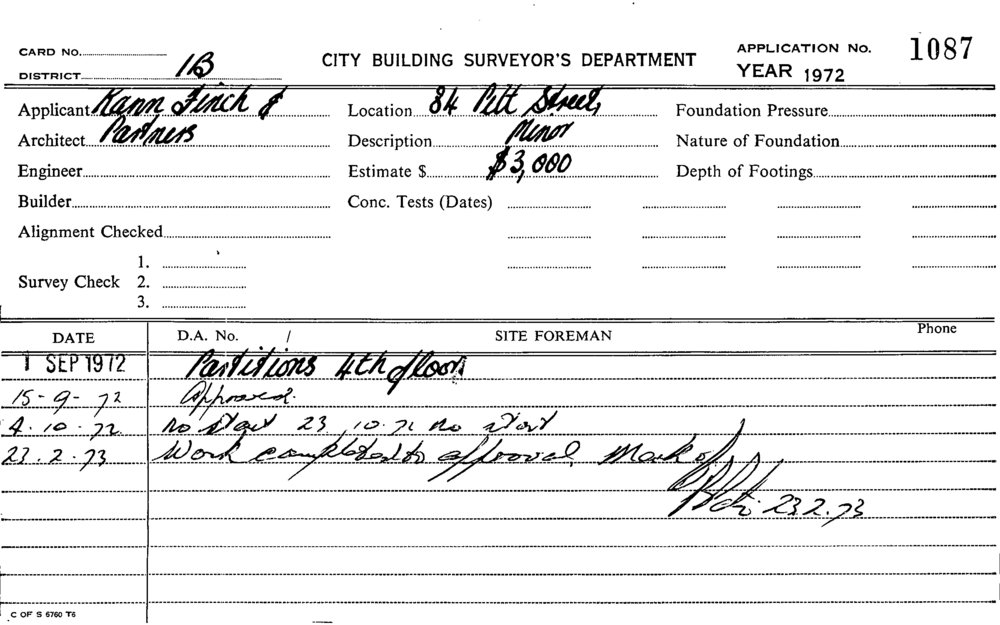 CARD NO. CITY BUILDING SURVEYOR'S DEPARTMENT APPLICATION No. 1087
DISTRICT 1B YEAR 1972
Applicant Kann Finch & Location 84 Pitt Street, Foundation Pressure
Architect Partners Description Minor Nature of Foundation
Engineer Estimate $ $3,000 Depth of Footings
Builder Conc. Tests (Dates)
Alignment Checked
1.
Survey Check 2.
3.
DATE D.A. No. / SITE FOREMAN Phone
1 SEP 1972 Partitions 4th floor
15-9-72 Approved.
4.10.72 no start 23.10.72 no start
23.2.73 Work completed to approval, Mark of
23.2.73
C OF S 6760 T6